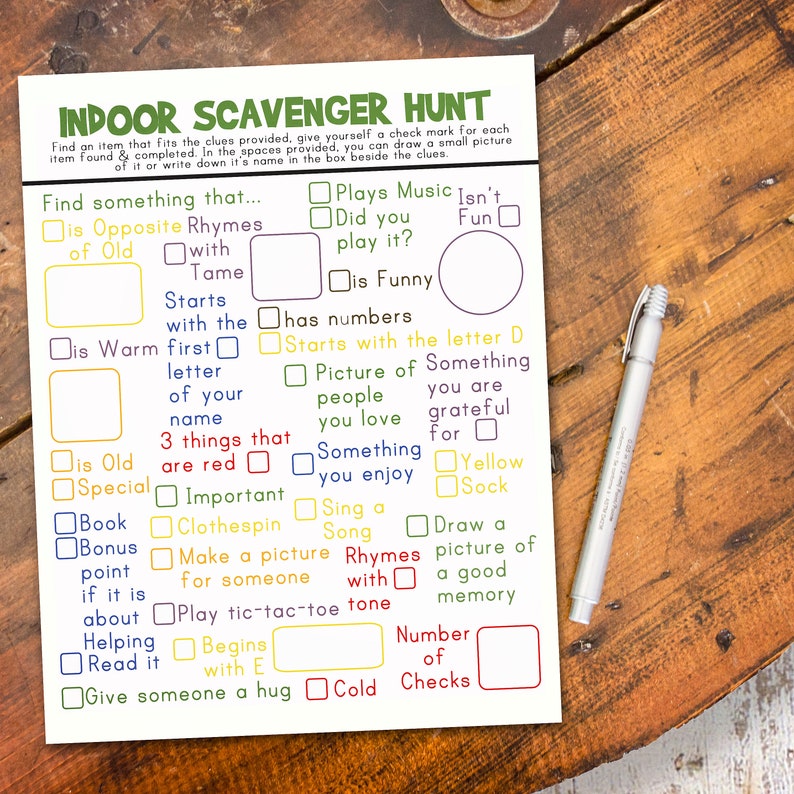 INDOOR SCAVENGER HUNT
Find an item that fits the clues provided, give yourself a check mark for each
item found & completed. In the spaces provided, you can draw a small picture
of it or write down it's name in the box beside the clues.
Find something that...
Plays Music
Did you
play it?
Isn't
Fun
is Opposite
of Old
Rhymes
with
Tame
is Funny
Starts
with the
first
letter
of your
name
has numbers
Starts with the letter D
is Warm
Picture of
people
you love
Something
you are
grateful
for
3 things that
are red
Something
you enjoy
is Old
Special
Yellow
Sock
Important
Book
Bonus
point
if it is
about
Helping
Read it
Clothespin
Sing a
Song
Draw a
picture of
a good
memory
Make a picture
for someone
Rhymes
with
tone
Play tic-tac-toe
Begins
with E
Number
of
Checks
Give someone a hug
Cold